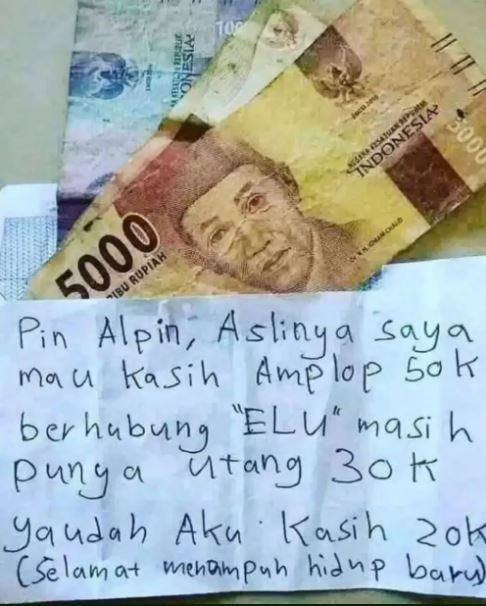 100
NEGARA KESATUAN REPUBLIK
INDONESIA
5000
5000
RIBU RUPIAH
DR. K.H. IDHAM CHALID
Pin Alpin, Aslinya saya
mau kasih Amplop 50k
berhubung "ELU" masih
punya utang 30k
yaudah Aku kasih 20k
(Selamat menampuh hidup baru)